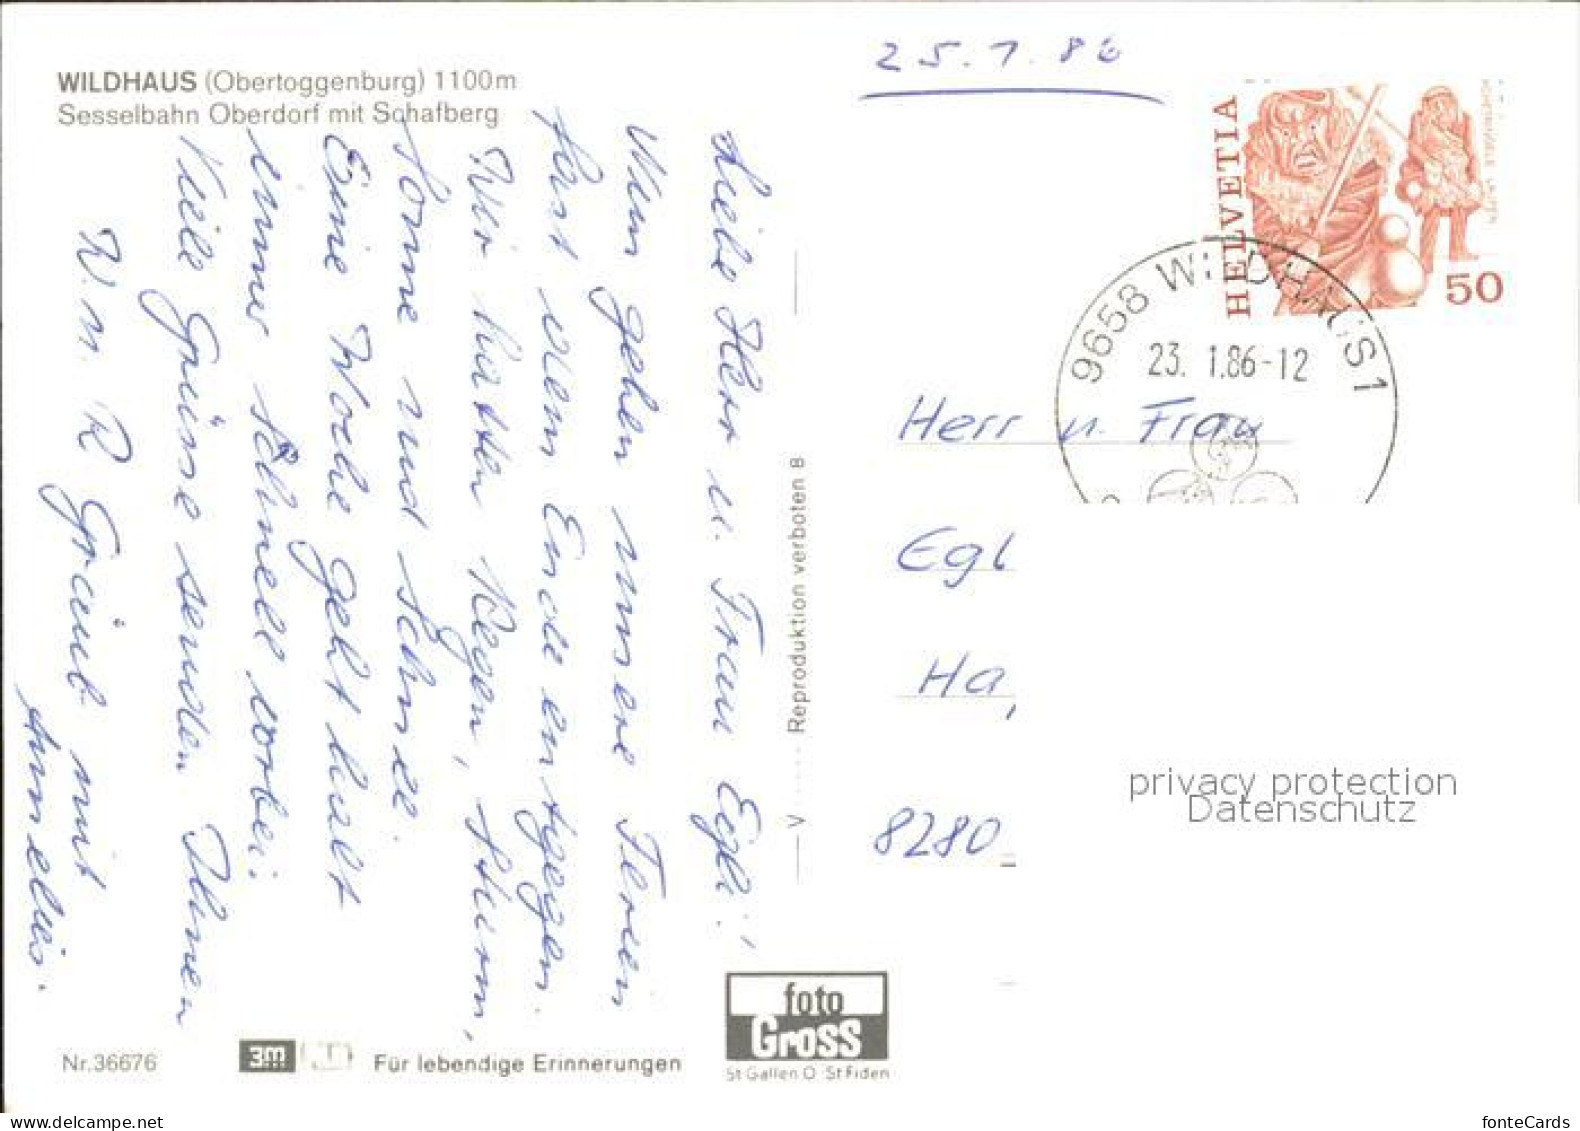 WILDHAUS (Obertoggenburg) 1100m
Sesselbahn Oberdorf mit Schafberg
25.1.86
HELVETIA
50
9658 WILDHAUS 1
23. 1.86-12
Liebe Herr u. Frau Egli!
Nun gehen unsere Ferien
fast dem Ende entgegen.
Wir hatten Regen, Sturm,
Sonne und Schnee.
Eine Woche geht halt
immer schnell vorbei.
Viele Grüsse senden Ihnen
W. u. R Gräub mit
Annelies.
V..... Reproduktion verboten B
Herr u. Frau
Egl
Ha
8280
privacy protection
Datenschutz
foto
Gross
St Gallen O St Fiden
Nr.36676
3m
Für lebendige Erinnerungen
fonteCards